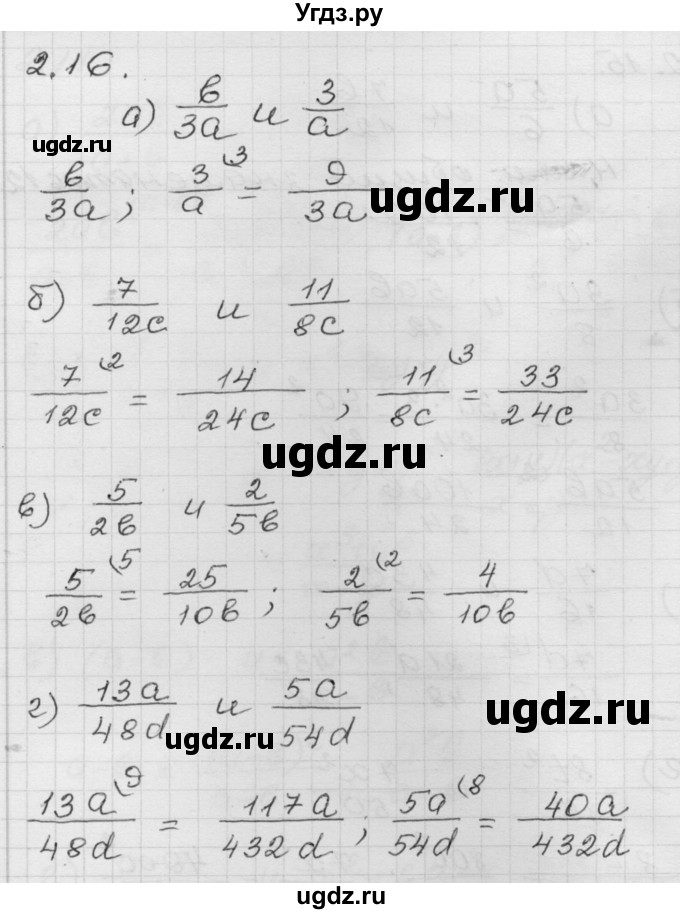 Угдз.ру
2.16.
а) в/3a и 3/a
ugdz.ru
в/3a; 3/a (3 = 9/3a
ugdz.ru
б) 7/12c и 11/8c
7/12c (2 = 14/24c; 11/8c (3 = 33/24c
ugdz.ru
в) 5/2в и 2/5в
5/2в (5 = 25/10в; 2/5в (2 = 4/10в
г) 13a/48d и 5a/54d
ugdz.ru
ugdz.ru
13a/48d (9 = 117a/432d; 5a/54d (8 = 40a/432d
ugdz.ru